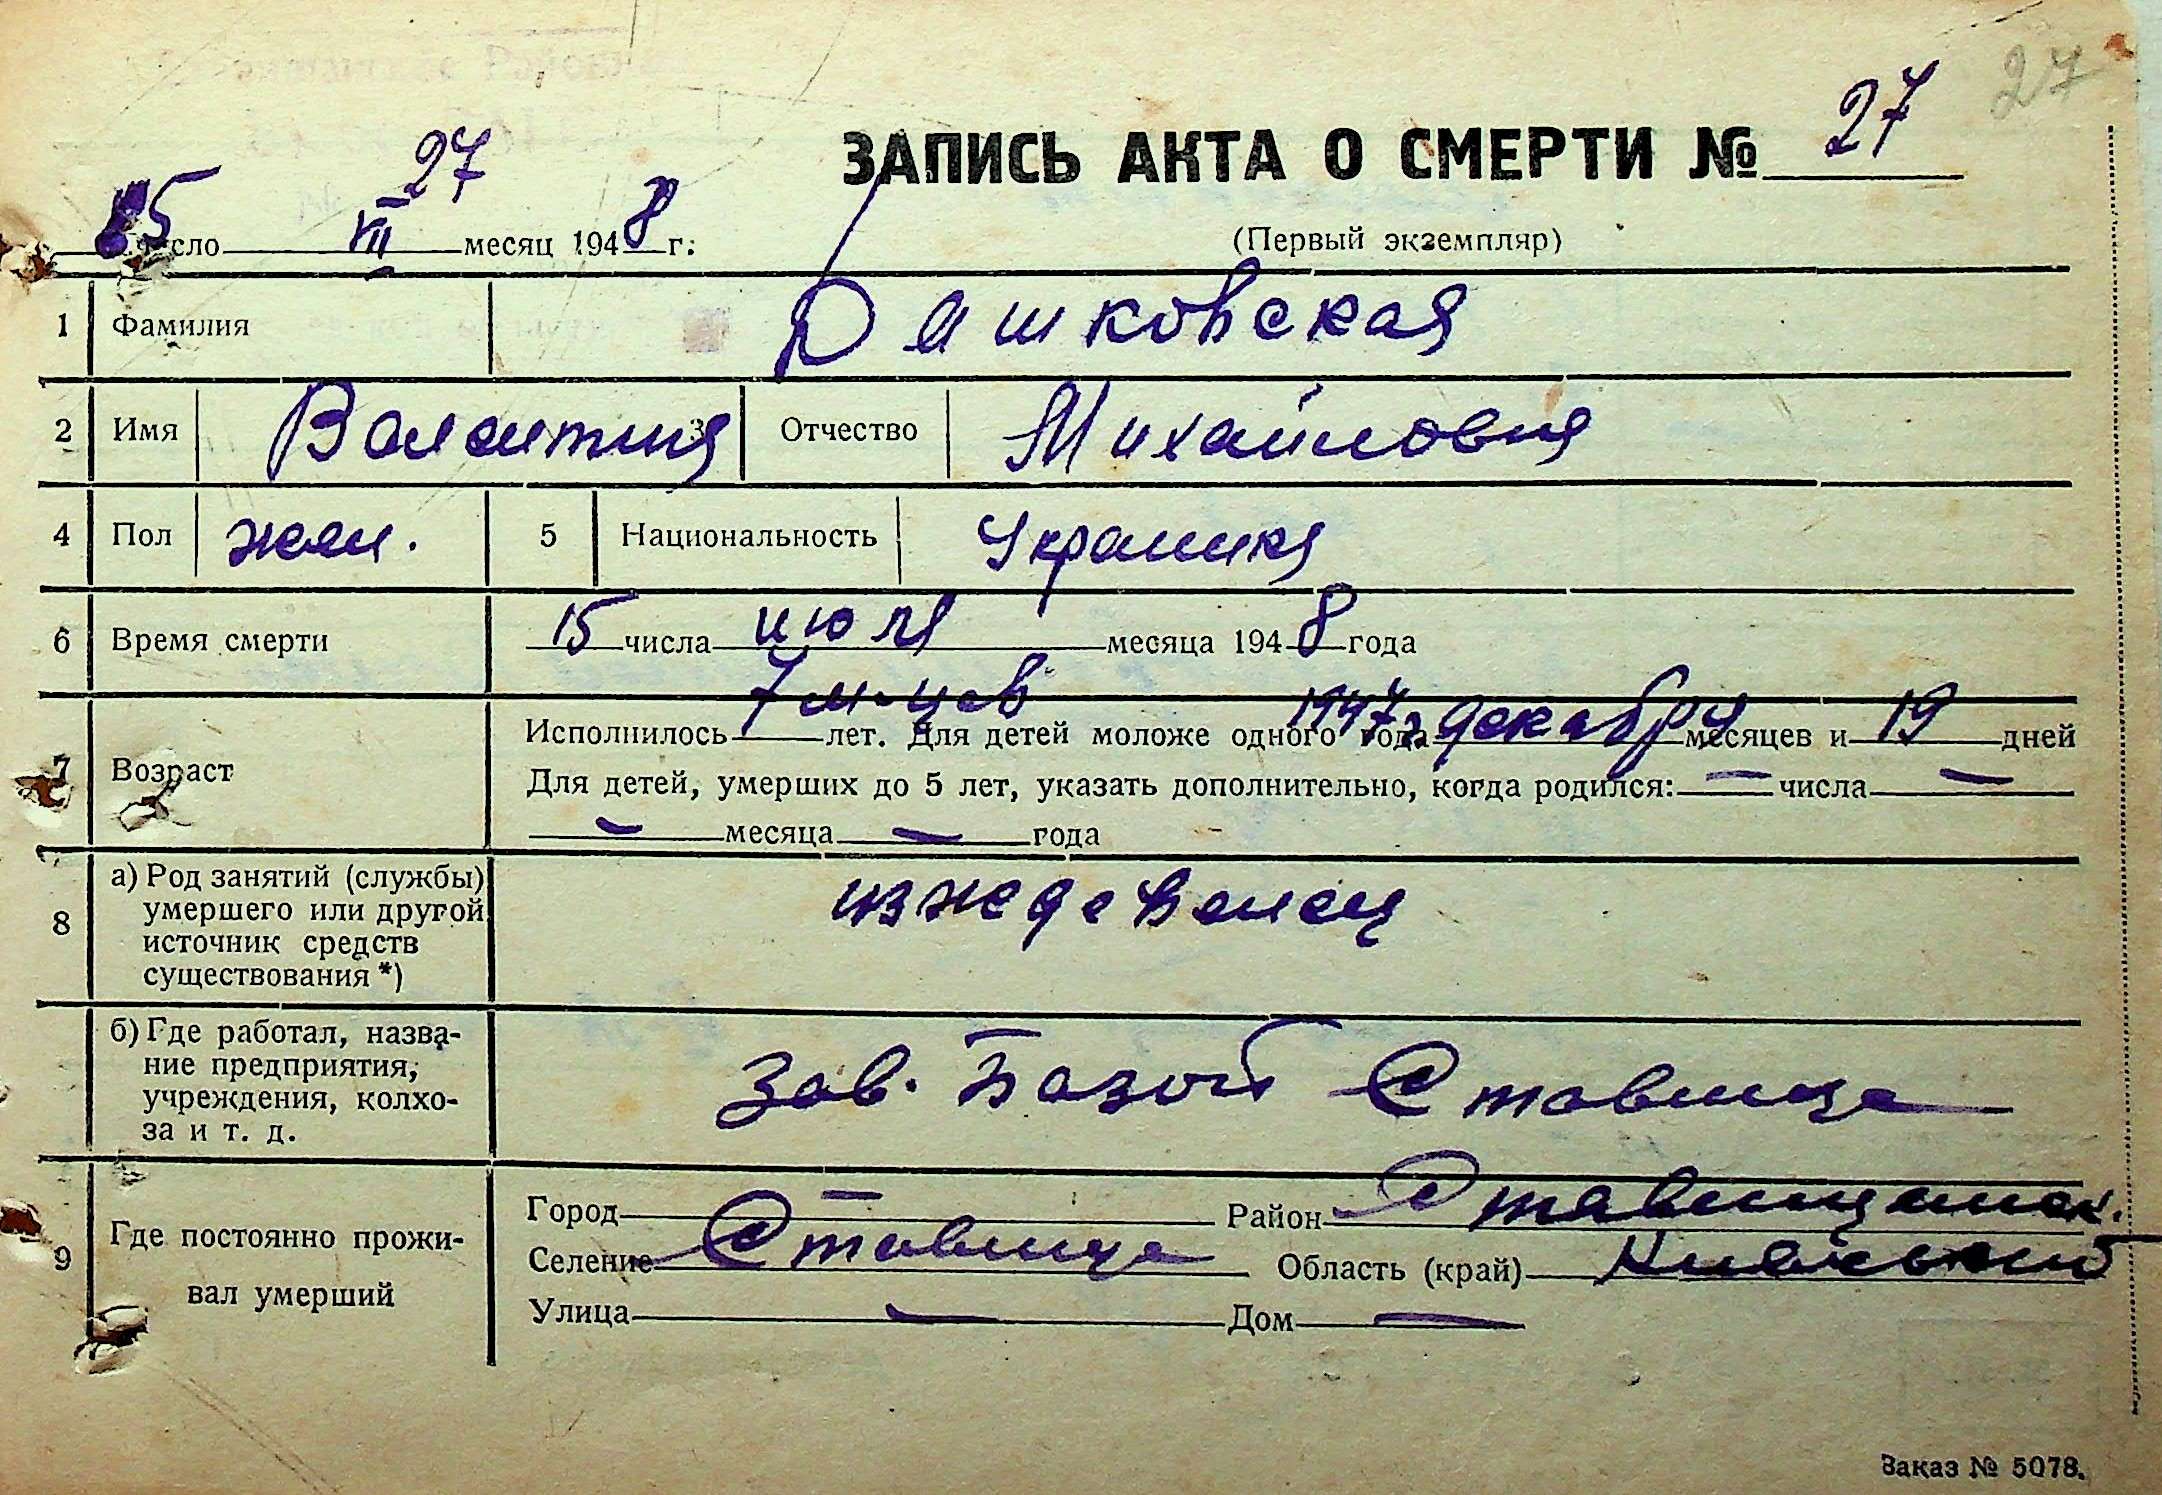 27
ЗАПИСЬ АКТА О СМЕРТИ № 27
27
15 число VII месяц 1948 г.
(Первый экземпляр)
1 Фамилия Дашковская
2 Имя Валентина 3 Отчество Михайловна
4 Пол жен. 5 Национальность Украинка
6 Время смерти 15 числа июля месяца 1948 года
7 м-цев
7 Возраст
Исполнилось лет. Для детей моложе одного года 1947 г декабря месяцев и 19 дней
Для детей, умерших до 5 лет, указать дополнительно, когда родился: — числа —
— месяца — года
8 а) Род занятий (службы) умершего или другой источник средств существования *)
изждевенец
б) Где работал, назва-
ние предприятия,
учреждения, колхо-
за и т. д.
Зав. Базой Ставище
9 Где постоянно прожи-
вал умерший
Город — Район Ставищанск.
Селение Ставище Область (край) Киевський
Улица — Дом —
Заказ № 5078.